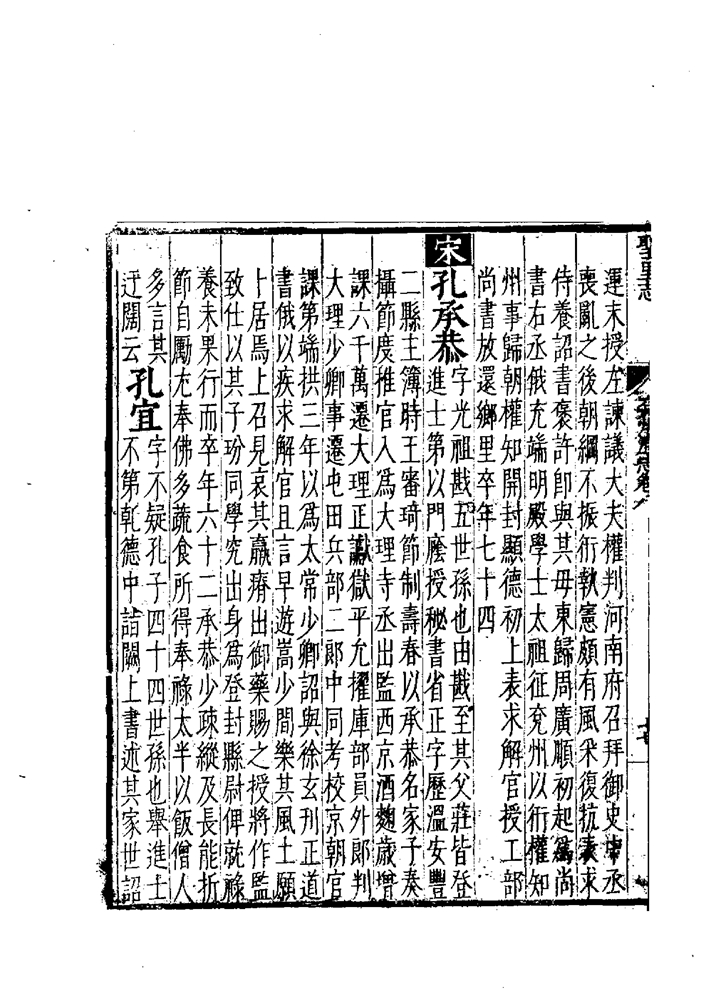 聖里志
運末授左諫議大夫權判河南府召拜御史中丞
喪亂之後朝綱不振衍執憲頗有風采復抗表求
侍養詔書褒許卽與其母東歸周廣順初起爲尚
書右丞俄充端明殿學士太祖征兗州以衍權知
州事歸朝權知開封顯德初上表求解官授工部
尚書放還鄉里卒年七十四
宋孔承恭字光祖戡五世孫也由戡至其父莊皆登
進士第以門廕授秘書省正字歷溫安豐
二縣主簿時王審琦節制壽春以承恭名家子奏
攝節度推官入爲大理寺丞出監西京酒麴歲增
課六千萬遷大理正讞獄平允擢庫部員外郞判
大理少卿事遷屯田兵部二郞中同考校京朝官
課第端拱三年以爲太常少卿詔與徐玄刊正道
書俄以疾求解官且言早遊嵩少間樂其風土願
卜居焉上召見哀其羸瘠出御藥賜之授將作監
致仕以其子玢同學究出身爲登封縣尉俾就祿
養未果行而卒年六十二承恭少疎縱及長能折
節自勵尤奉佛多蔬食所得奉祿太半以飯僧人
多言其
迂闊云孔宜字不疑孔子四十四世孫也舉進士
不第乾德中詣闕上書述其家世詔